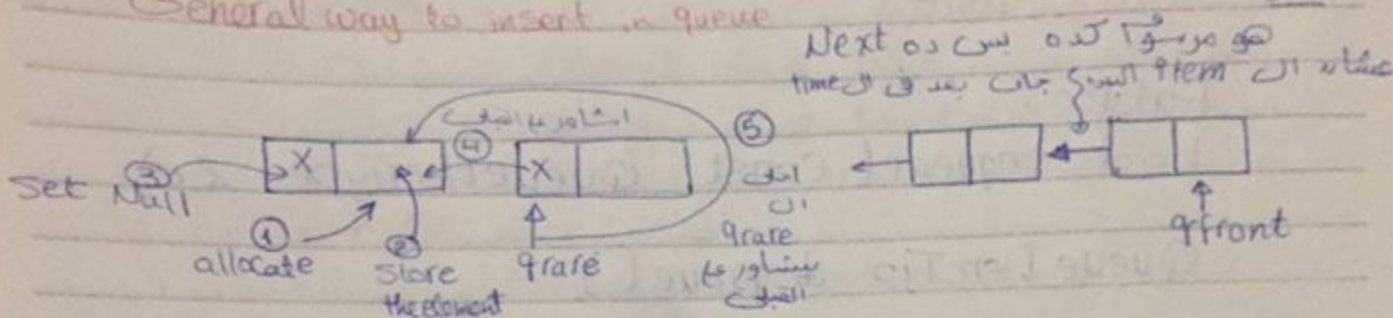 General way to insert in queue
هو مرسوم كده بس ده Next
عشان ال item اليمين جاي بعد في ال time
اشاور على
④
⑤
③
Set Null
X
X
①
allocate
②
Store
the element
qrare
ال
qrare
بيشاور على
qfront